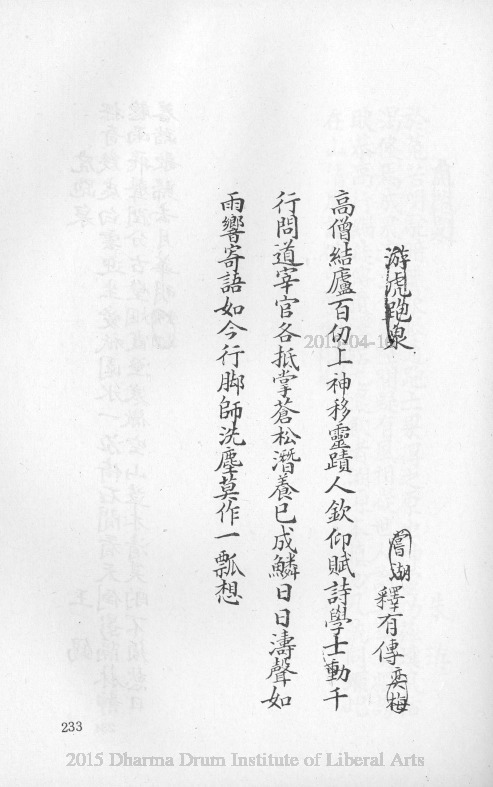 游虎跑泉
鴛湖 釋有傳 奕梅
高僧結廬百仞上神移靈蹟人欽仰賦詩學士動千
行問道宰官各抵掌蒼松潛養已成鱗日日濤聲如
雨響寄語如今行脚師洗塵莫作一瓢想
233
2015 Dharma Drum Institute of Liberal Arts